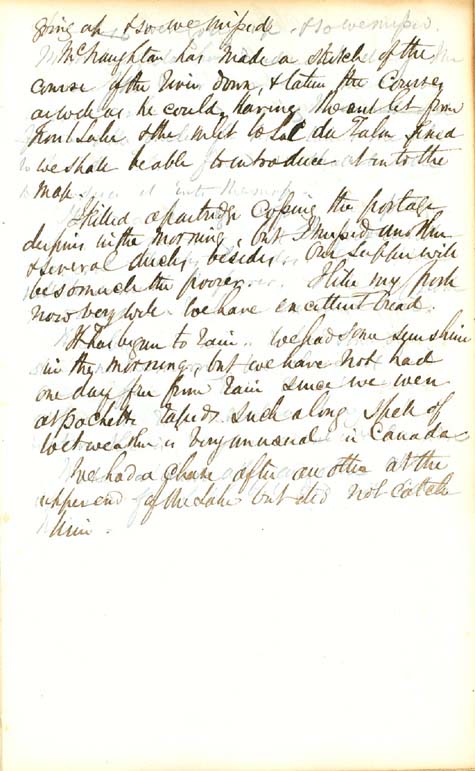 going up & so we missed
McNaughtan has made a sketch of the
course of the River down, & taken the Courses
as well as he could, having the out let from
Trout Lake & the inlet to Lac du Talon fixed
we shall be able to introduce it into the
map.
I killed a partridge crossing the portage
des pins in the morning, but I missed another
& several ducks, besides. Our supper will
be so much the poorer. I like my pork
now very well. We have excellent bread.
It has begun to rain. We had some sun shine
in the morning, but we have not had
one day free from rain since we were
at rapids such a long spell of
wet weather is very unusual in Canada
We had a chase after an otter at the
upper end of the Lake but did not catch
him.